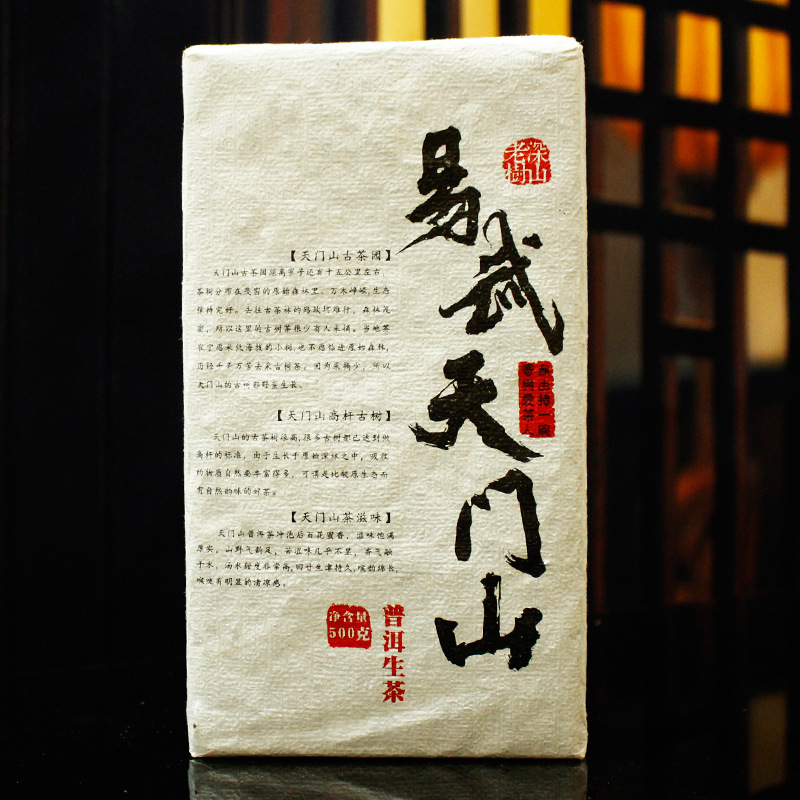 深山
老樹
易武天门山
無由持一碗
寄與愛茶人
【天门山古茶园】
天门山古茶园距离寨子还有十五公里左右，
茶树分布在茂密的原始森林里、万木峥嵘,生态
保持完好。去往古茶林的路崎岖难行，森林茂
密，所以这里的古树茶很少有人来摘。当地茶
农宁愿采低海拔的小树,也不愿钻进原始森林,
历经千辛万苦去采古树茶。因为采摘少，所以
天门山的古树都野蛮生长。
【天门山高杆古树】
天门山的古茶树很高,很多古树都已达到做
高杆的标准，由于生长于原始深林之中，吸收
的物质自然要丰富得多，可谓是比较原生态而
有自然韵味的好茶。
【天门山茶滋味】
天门山普洱茶冲泡后百花蜜香，滋味饱满
厚实，山野气韵足，苦涩味几乎不显，香气融
于水，汤水甜度非常高,回甘生津持久,喉韵绵长,
喉咙有明显的清凉感。
净含量
500克
普洱生茶